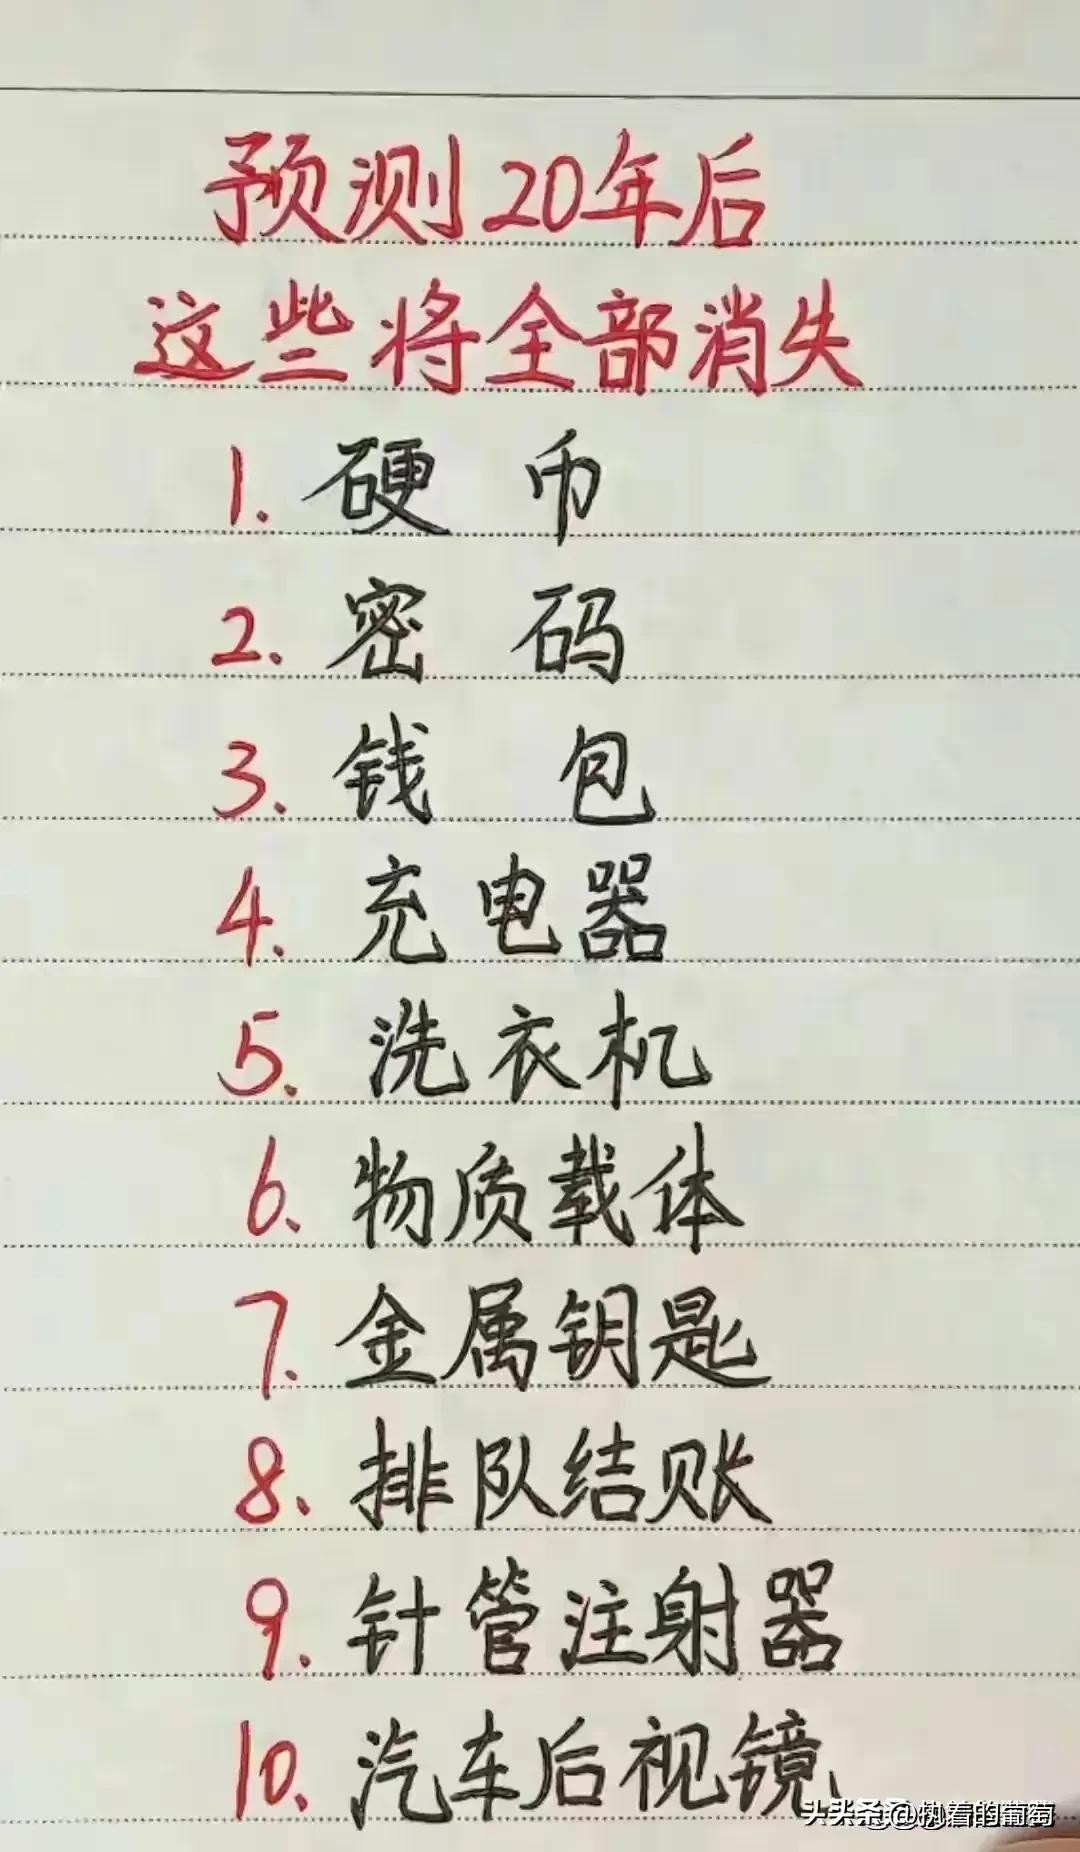 预测20年后
这些将全部消失
1. 硬币
2. 密码
3. 钱包
4. 充电器
5. 洗衣机
6. 物质载体
7. 金属钥匙
8. 排队结账
9. 针管注射器
10. 汽车后视镜
头条 @执着的葡萄